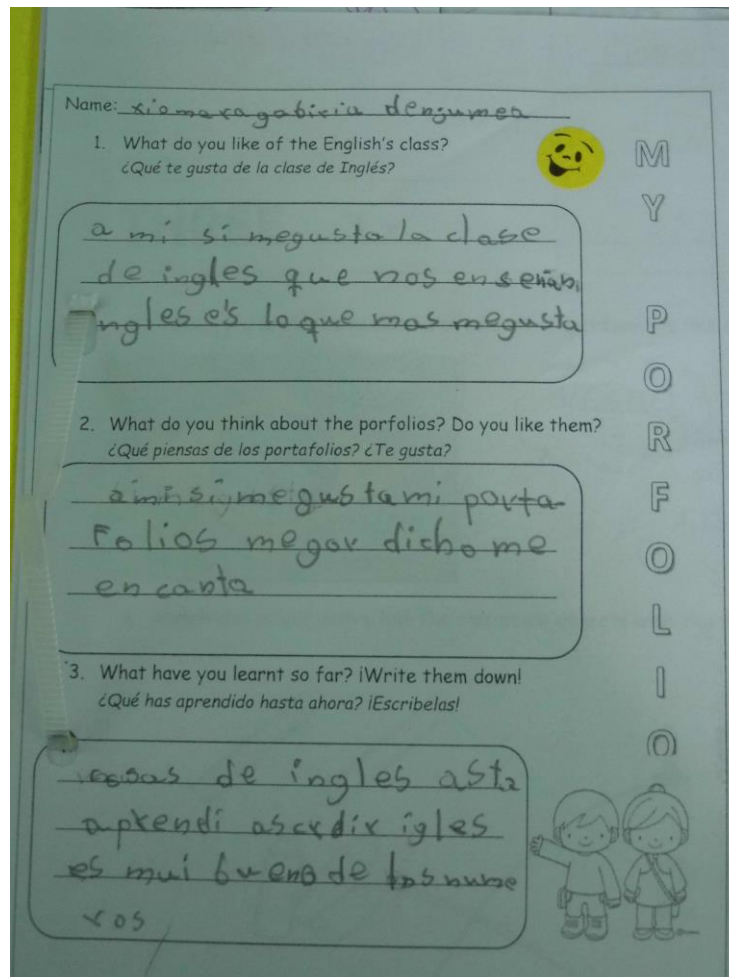 Name: xiomaragabiria denjumea
1. What do you like of the English's class?
¿Qué te gusta de la clase de Inglés?
a mi si megusto la clase
de ingles que nos enseñan
ingles es lo que mas megusta
2. What do you think about the porfolios? Do you like them?
¿Qué piensas de los portafolios? ¿Te gusta?
a mi si me gusta mi porta
Folios megor dicho me
encanta
3. What have you learnt so far? ¡Write them down!
¿Qué has aprendido hasta ahora? ¡Escribelas!
cosas de ingles asta
aprendi ascrdir igles
es mui bueno de los nume
ros
MY PORFOLIO